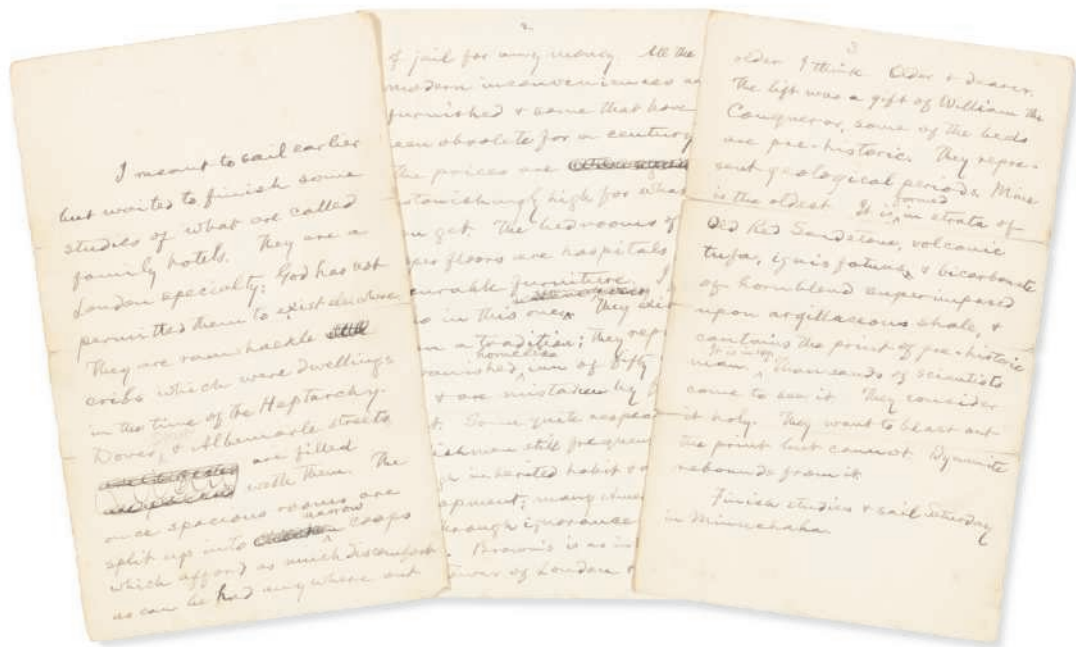 I meant to sail earlier
but waited to finish some
studies of what are called
family hotels. They are a
London specialty; God has not
permitted them to exist elsewhere
They are ramshackle
cribs which were dwellings
in the time of the Heptarchy.
Dover, & Albemarle streets
are filled
with them. The
once spacious rooms are
split up into narrow coops
which afford as much discomfort
as can be had anywhere out
2
of jail for any money All the
modern inconveniences ar
furnished & some that have
een obsolete for a century
the prices are
stonishingly high for what
ou get. The bedrooms of
per floors are hospitals
curable furniture
so in this one.
n a tradition; they rep
vanished homelike inn of fifty
& are mistaken by
t. Some quite respec
ishmen still frequen
gh inherited habit &
opment; many
through ignorance
Brown's is as in
ower of London &
3
older I think Older & dearer.
The lift was a gift of William the
Conqueror, some of the beds
are pre-historic. They repre-
sent geological periods. Mine
is the oldest. It is formed in strata of
Old Red Sandstone, volcanic
tufa, ignis fatuus, & bicarbonate
of hornblend superimposed
upon argillaceous shale, &
contains the print of pre-historic
man. It is in Thousands of scientists
come to see it. They consider
it holy. They want to blast out
the print but cannot. Dynamite
rebounds from it.
Finish studies & sail Saturday
in Minnehaha.